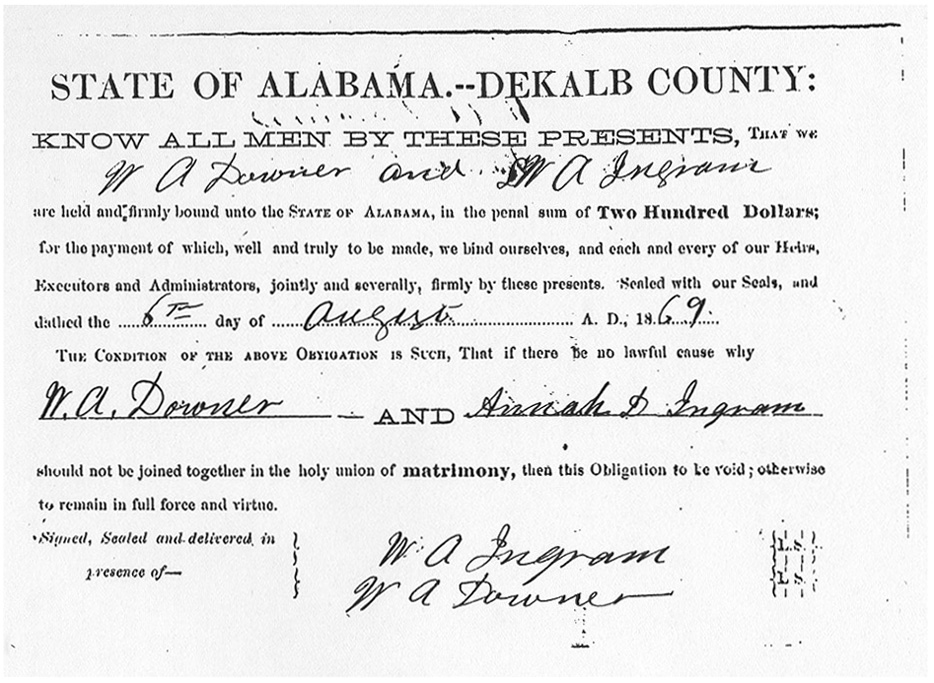 STATE OF ALABAMA.--DEKALB COUNTY:
KNOW ALL MEN BY THESE PRESENTS, THAT WE
W A Downer and W A Ingram
are held and firmly bound unto the STATE OF ALABAMA, in the penal sum of Two Hundred Dollars;
for the payment of which, well and truly to be made, we bind ourselves, and each and every of our Heirs,
Executors and Administrators, jointly and severally, firmly by these presents. Sealed with our Seals, and
dathed the 6TH day of August A. D., 1869.
THE CONDITION OF THE ABOVE OBYIGATION IS SUCH, That if there be no lawful cause why
W. A. Downer AND Annah D Ingram
should not be joined together in the holy union of matrimony, then this Obligation to be void; otherwise
to remain in full force and virtue.
Signed, Sealed and delivered in
presence of—
W A Ingram L. S.
W A Downer L S.